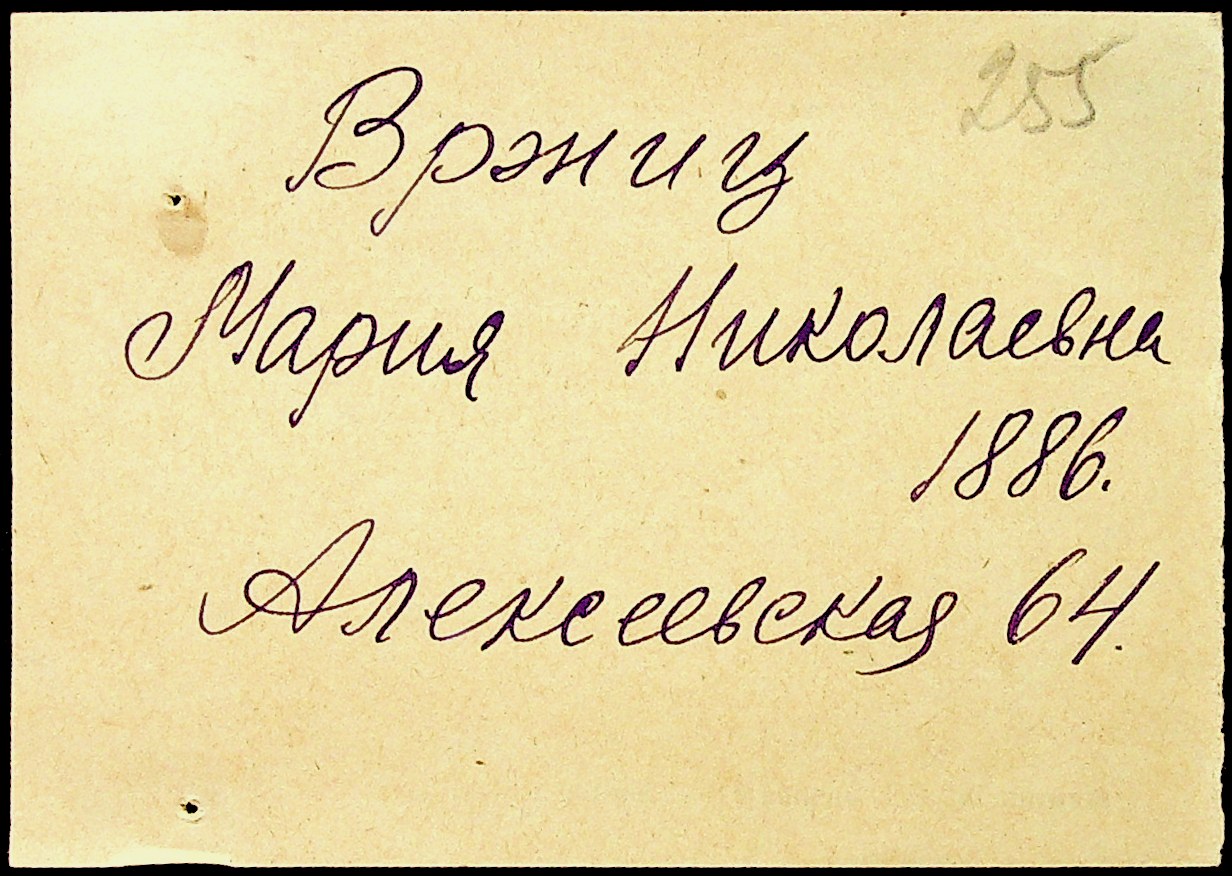 255
Врэниц
Мария Николаевна
1886.
Алексеевская 64.